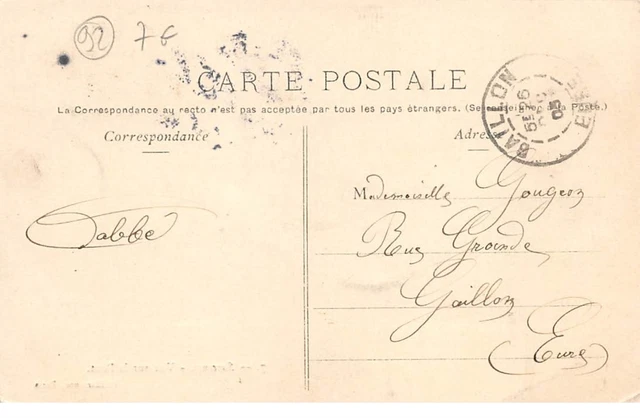 92 7€
CARTE POSTALE
La Correspondance au recto n'est pas acceptée par tous les pays étrangers. (Se renseigner à la Poste.)
Correspondance
Adresse
GAILLON
EURE
05
Mademoiselle Gougeon
Rue Grande
Gaillon
(Eure)
Labbé